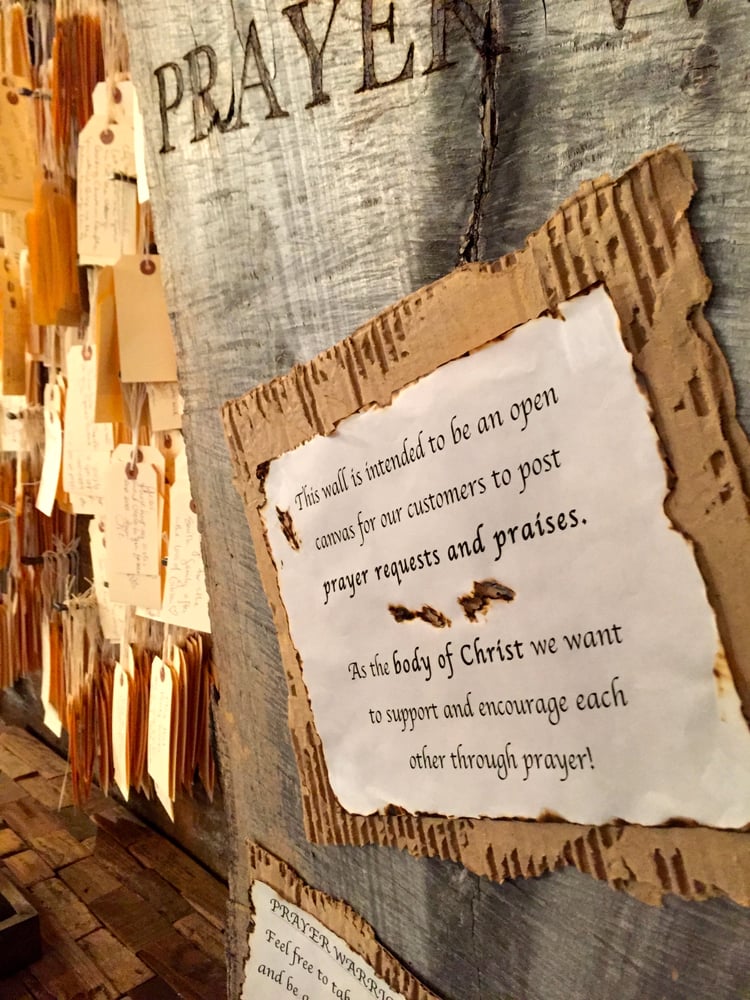 PRAYER W
This wall is intended to be an open
canvas for our customers to post
prayer requests and praises.
As the body of Christ we want
to support and encourage each
other through prayer!
PRAYER WARRIO
Feel free to tak
and be